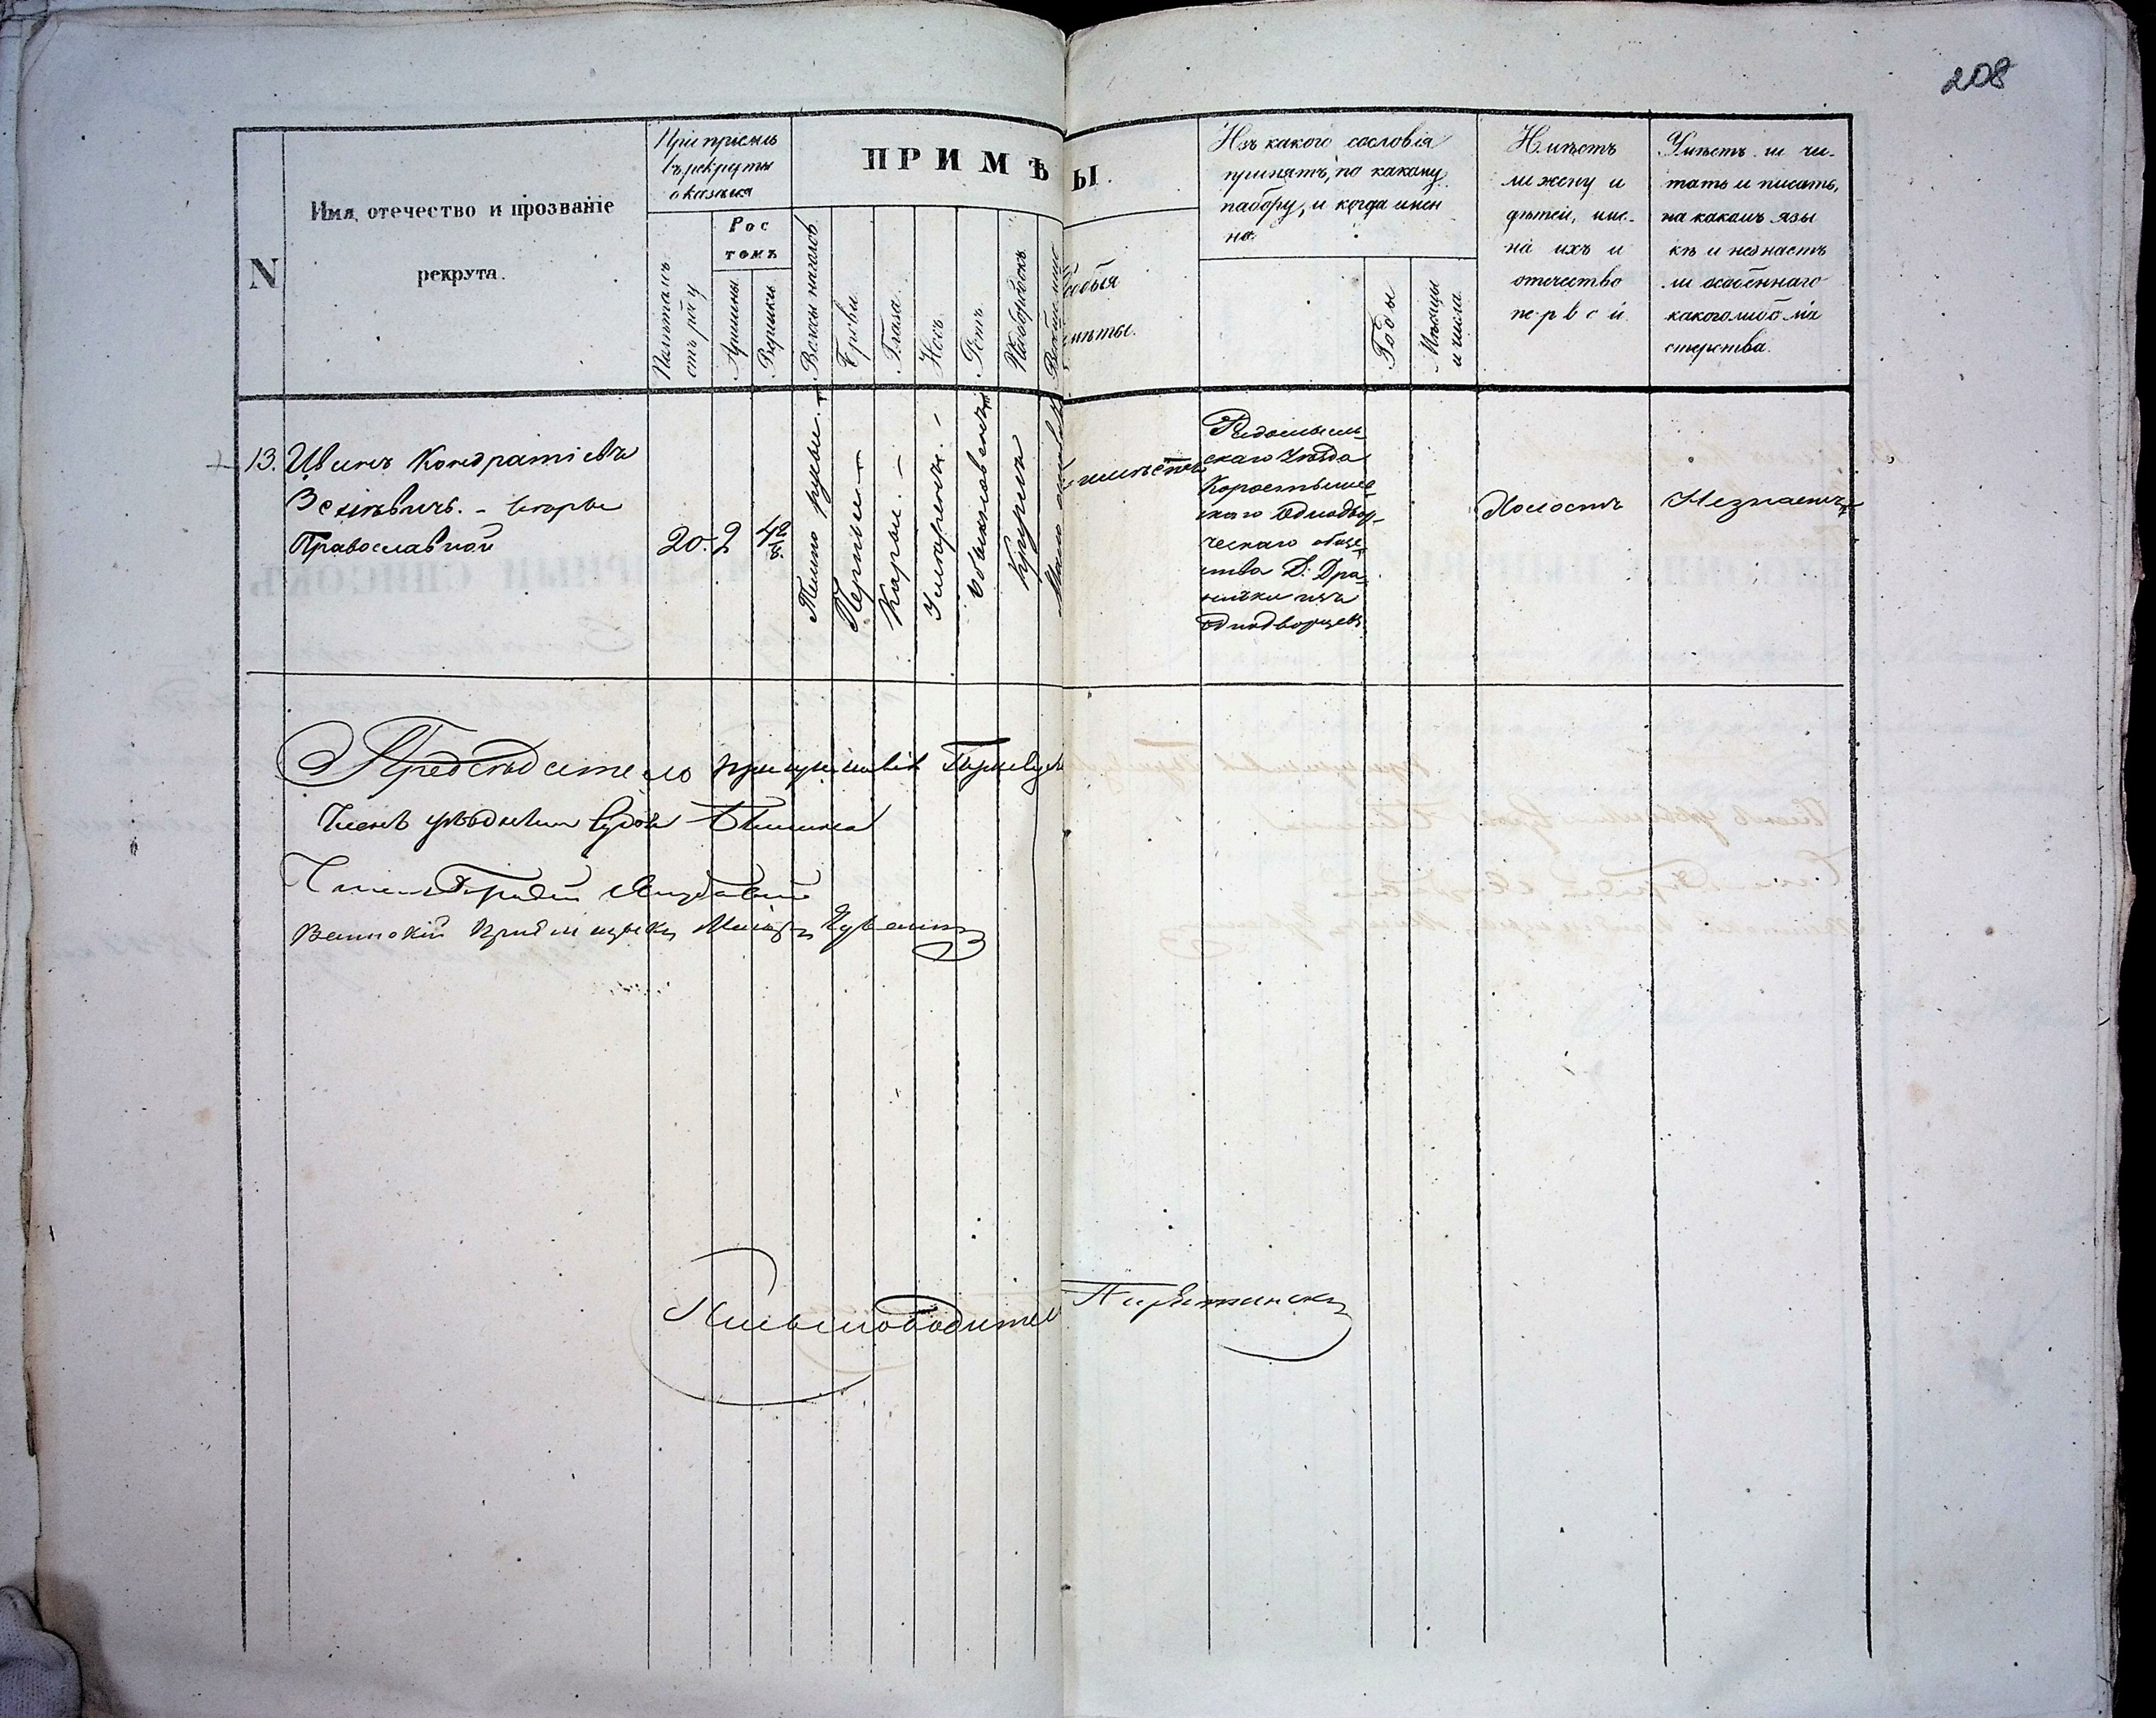 208
N
Имя, отечество и прозваніе
рекрута.
При пріемѣ
въ рекруты
оказался
Лѣтъ
отъ роду
Рос
томъ
Аршины
Вершки
ПРИМѢ
Ы.
Волосы на голов
Брови
Глаза
Носъ
Ротъ
Подбородокъ
собыя
мѣты.
Изъ какого сословія
принятъ, по какому
набору, и когда имен
но.
Годы
Мѣсяцы
и числа
Имѣетъ
ли жену и
дѣтей, име-
на ихъ и
отчество
первой
Умѣетъ ли чи-
тать и писать,
на какомъ язы
кѣ и незнаетъ
ли особеннаго
какоголибо ма
стерства.
13. Иванъ Кондратіевъ
Зенкевичъ. - вѣры
Православной
20.
2
4 2/8.
Темно русыи
Черныи
Каріи
Умѣренъ
обыкновенъ
Круглъ
имѣетъ
Радомысль
скаго Уѣзда
Коростышев
скаго Однодвор
ческаго обще
ства Д: Дра
нички изъ
однодворцевъ
Холостъ
Незнаетъ
Предсѣдатель
Членъ уѣздный Судья
Воинскій Пріемщикъ Маіоръ
Письмоводитель